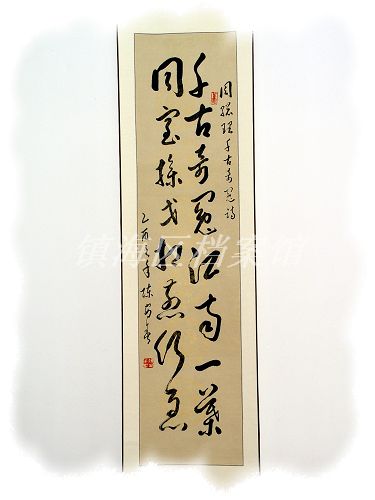 周总理千古奇冤诗
千古奇冤江南一叶
同室操戈相煎何急
乙酉年陈
镇海区档案馆